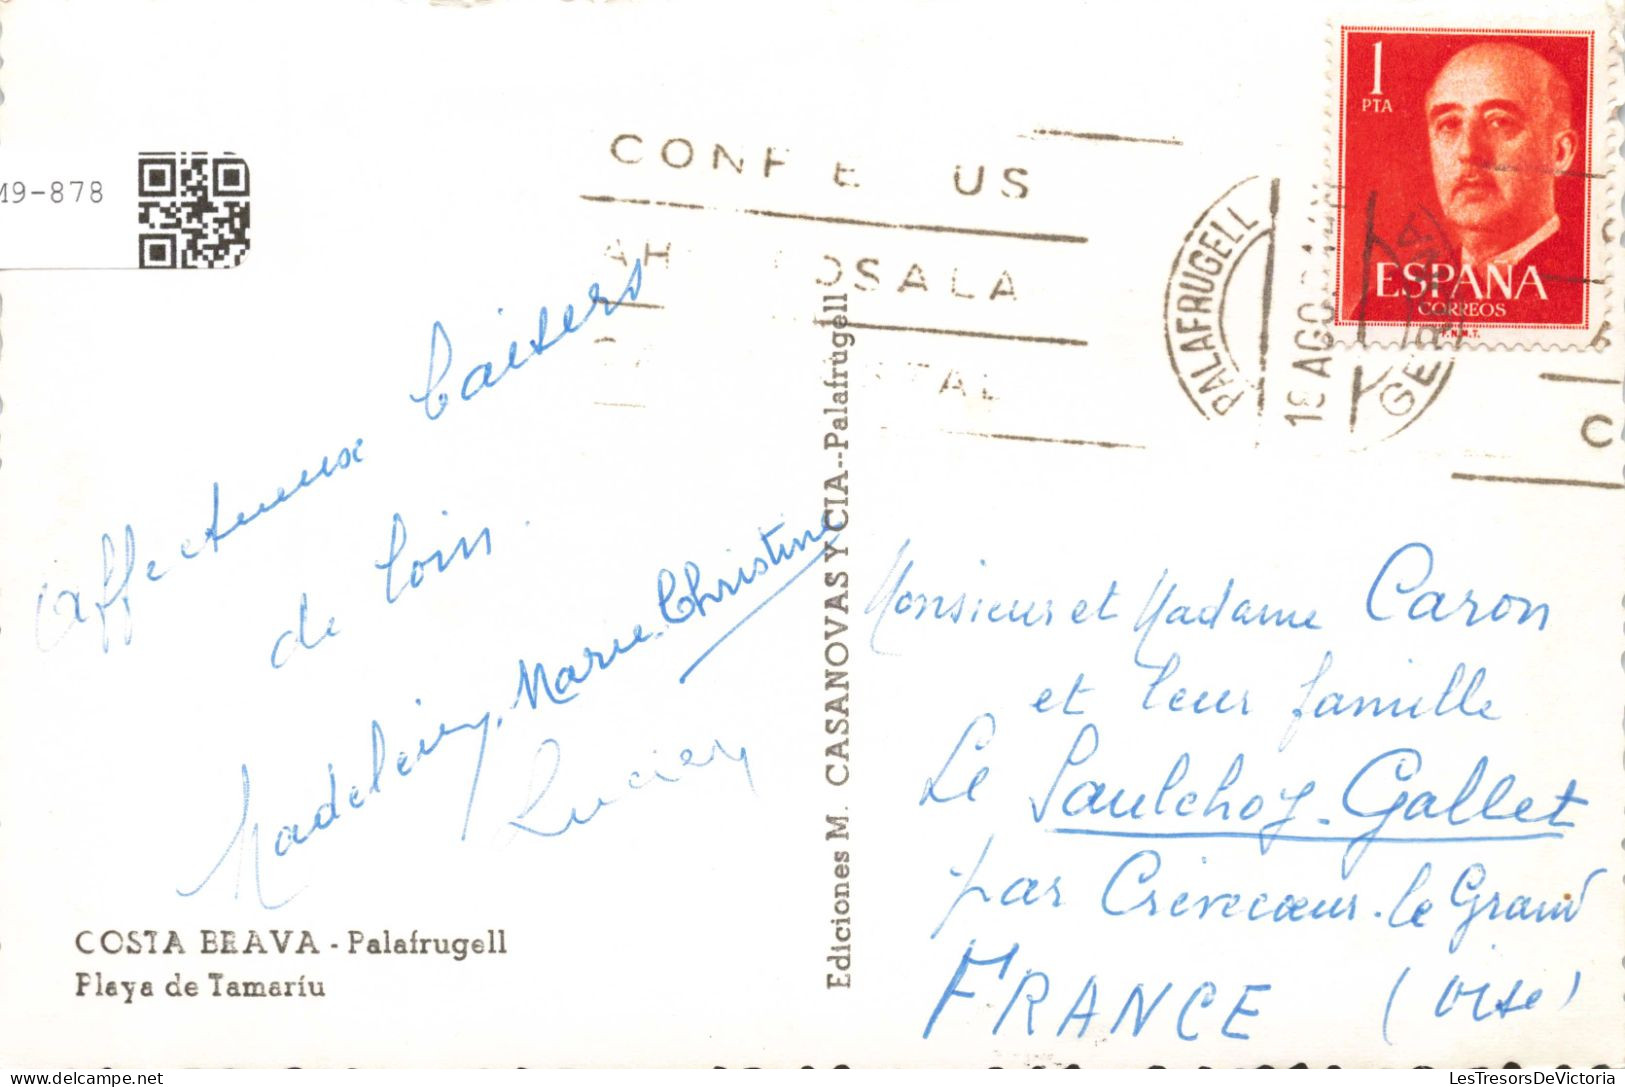 M9-878
CONF E US
AH OSALA
TAL
PALAFRUGELL
19 AGO
GERONA
1
PTA
ESPAÑA
CORREOS
F.N.M.T.
C
affectueux baisers
de loin.
Madeleine, Marie-Christine
Lucien
COSTA BRAVA - Palafrugell
Playa de Tamaríu
Ediciones M. CASANOVAS Y CIA--Palafrugell
Monsieur et Madame Caron
et leur famille
Le Saulchoy-Gallet
par Crèvecœur-le Grand
FRANCE (Oise)
LesTresorsDeVictoria